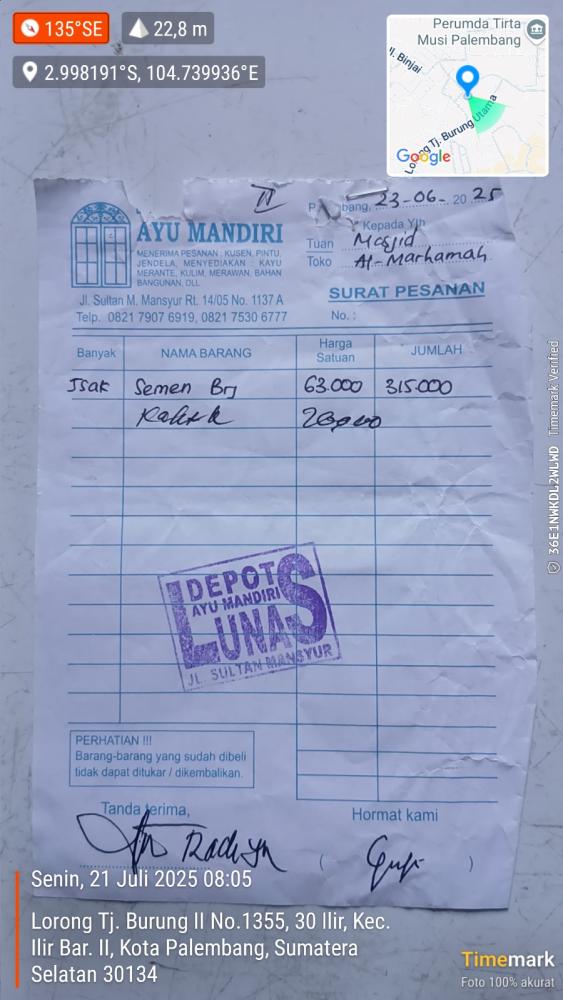 135°SE
22,8 m
2.998191°S, 104.739936°E
Perumda Tirta
Musi Palembang
Jl. Binjai
Tj. Burung Utama
Google
II
bang, 23-06-2025
Kepada Yth
AYU MANDIRI
Tuan Masjid
Toko Al-Marhamah
MENERIMA PESANAN : KUSEN, PINTU,
JENDELA, MENYEDIAKAN : KAYU
MERANTE, KULIM, MERAWAN, BAHAN
BANGUNAN, DLL
SURAT PESANAN
Jl. Sultan M. Mansyur Rt. 14/05 No. 1137 A
Telp. 0821 7907 6919, 0821 7530 6777
No. :
Banyak NAMA BARANG Harga Satuan JUMLAH
5sak Semen Brj 63.000 315.000
DEPOT
AYU MANDIRI
LUNAS
JL. SULTAN MANSYUR
PERHATIAN !!!
Barang-barang yang sudah dibeli
tidak dapat ditukar / dikembalikan.
Tanda terima, Hormat kami
( )
Senin, 21 Juli 2025 08:05
Lorong Tj. Burung II No.1355, 30 Ilir, Kec.
Ilir Bar. II, Kota Palembang, Sumatera
Selatan 30134
Timemark
Foto 100% akurat
36E1NWKDL2WLWD Timemark Verified